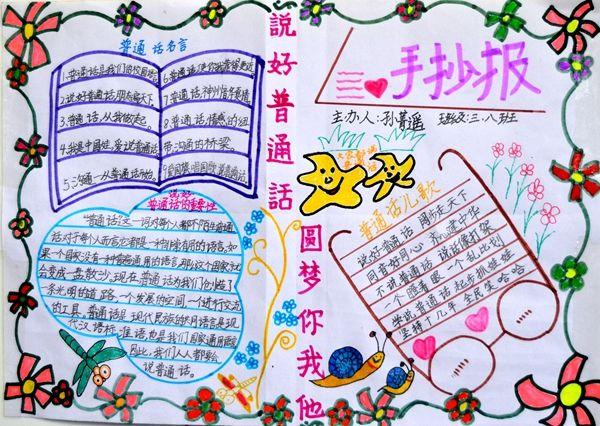 说好普通话
圆梦你我他
普通话名言
1.普通话是我们的校园语言
2.说好普通话朋友遍天下
3.普通话,从我做起。
4.我是中国娃,爱说普通话
5.沟通—从普通话开始。
7.普通话,神州情华夏情
8.普通话,情感的纽
带沟通的桥梁。
9.爱国旗,唱国歌,说普通话
普通话的重要性
“普通话”这一词对每个人都不陌生普通
话对于每个人而言它都是一种非常有用的语言,如
果一个国家没有一种普遍通用的语言,那么这个国家就
会变成一盘散沙。现在,普通话为我们创造了
一条光明的道路、一个发展的空间、一个进行交流
的工具。普通话是现代民族的共同语言是现
代汉语标准语也是我们国家通用语言
因此,我们人人都要会
说普通话。
手抄报
主办人:孙菁遥 班级:三.八班
普通话儿歌
说好普通话 用你走天下
同音好同心 和谐中华
不说普通话 说话像打架
一个瞪着眼 一个乱比划
学说普通话 起步抓娃娃
坚持十几年 全民笑哈哈